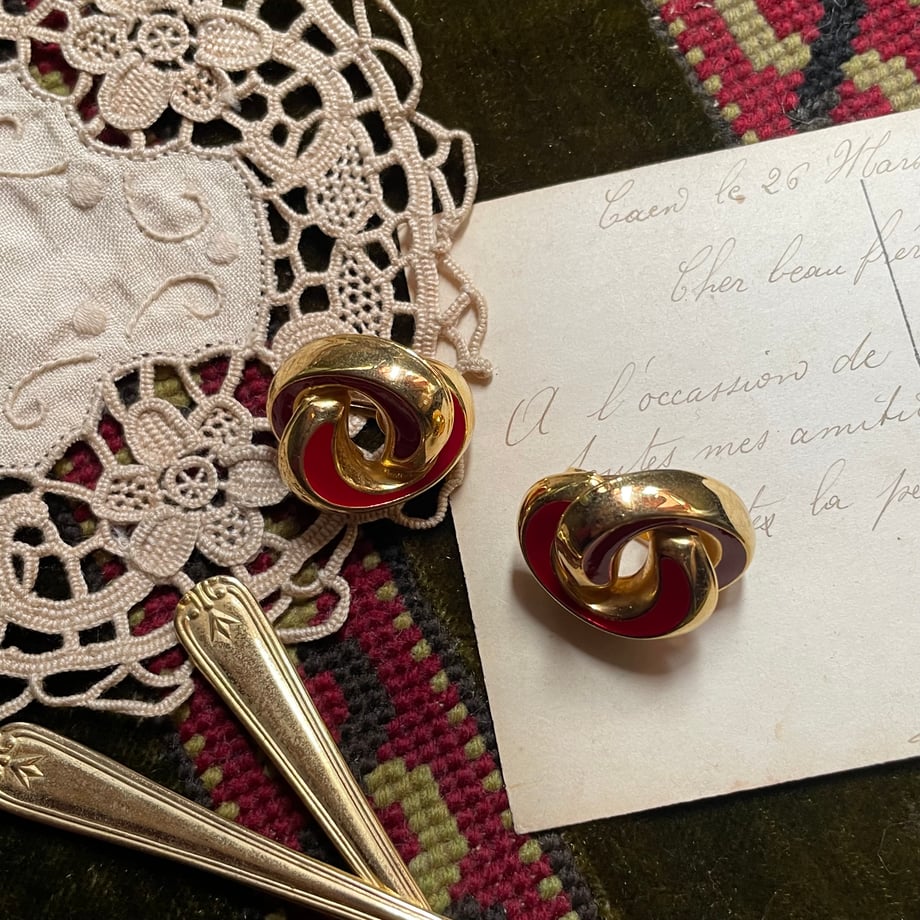 Caen le 26 Mar
Cher beau frèr
A l'occassion de
toutes mes amiti
la pe